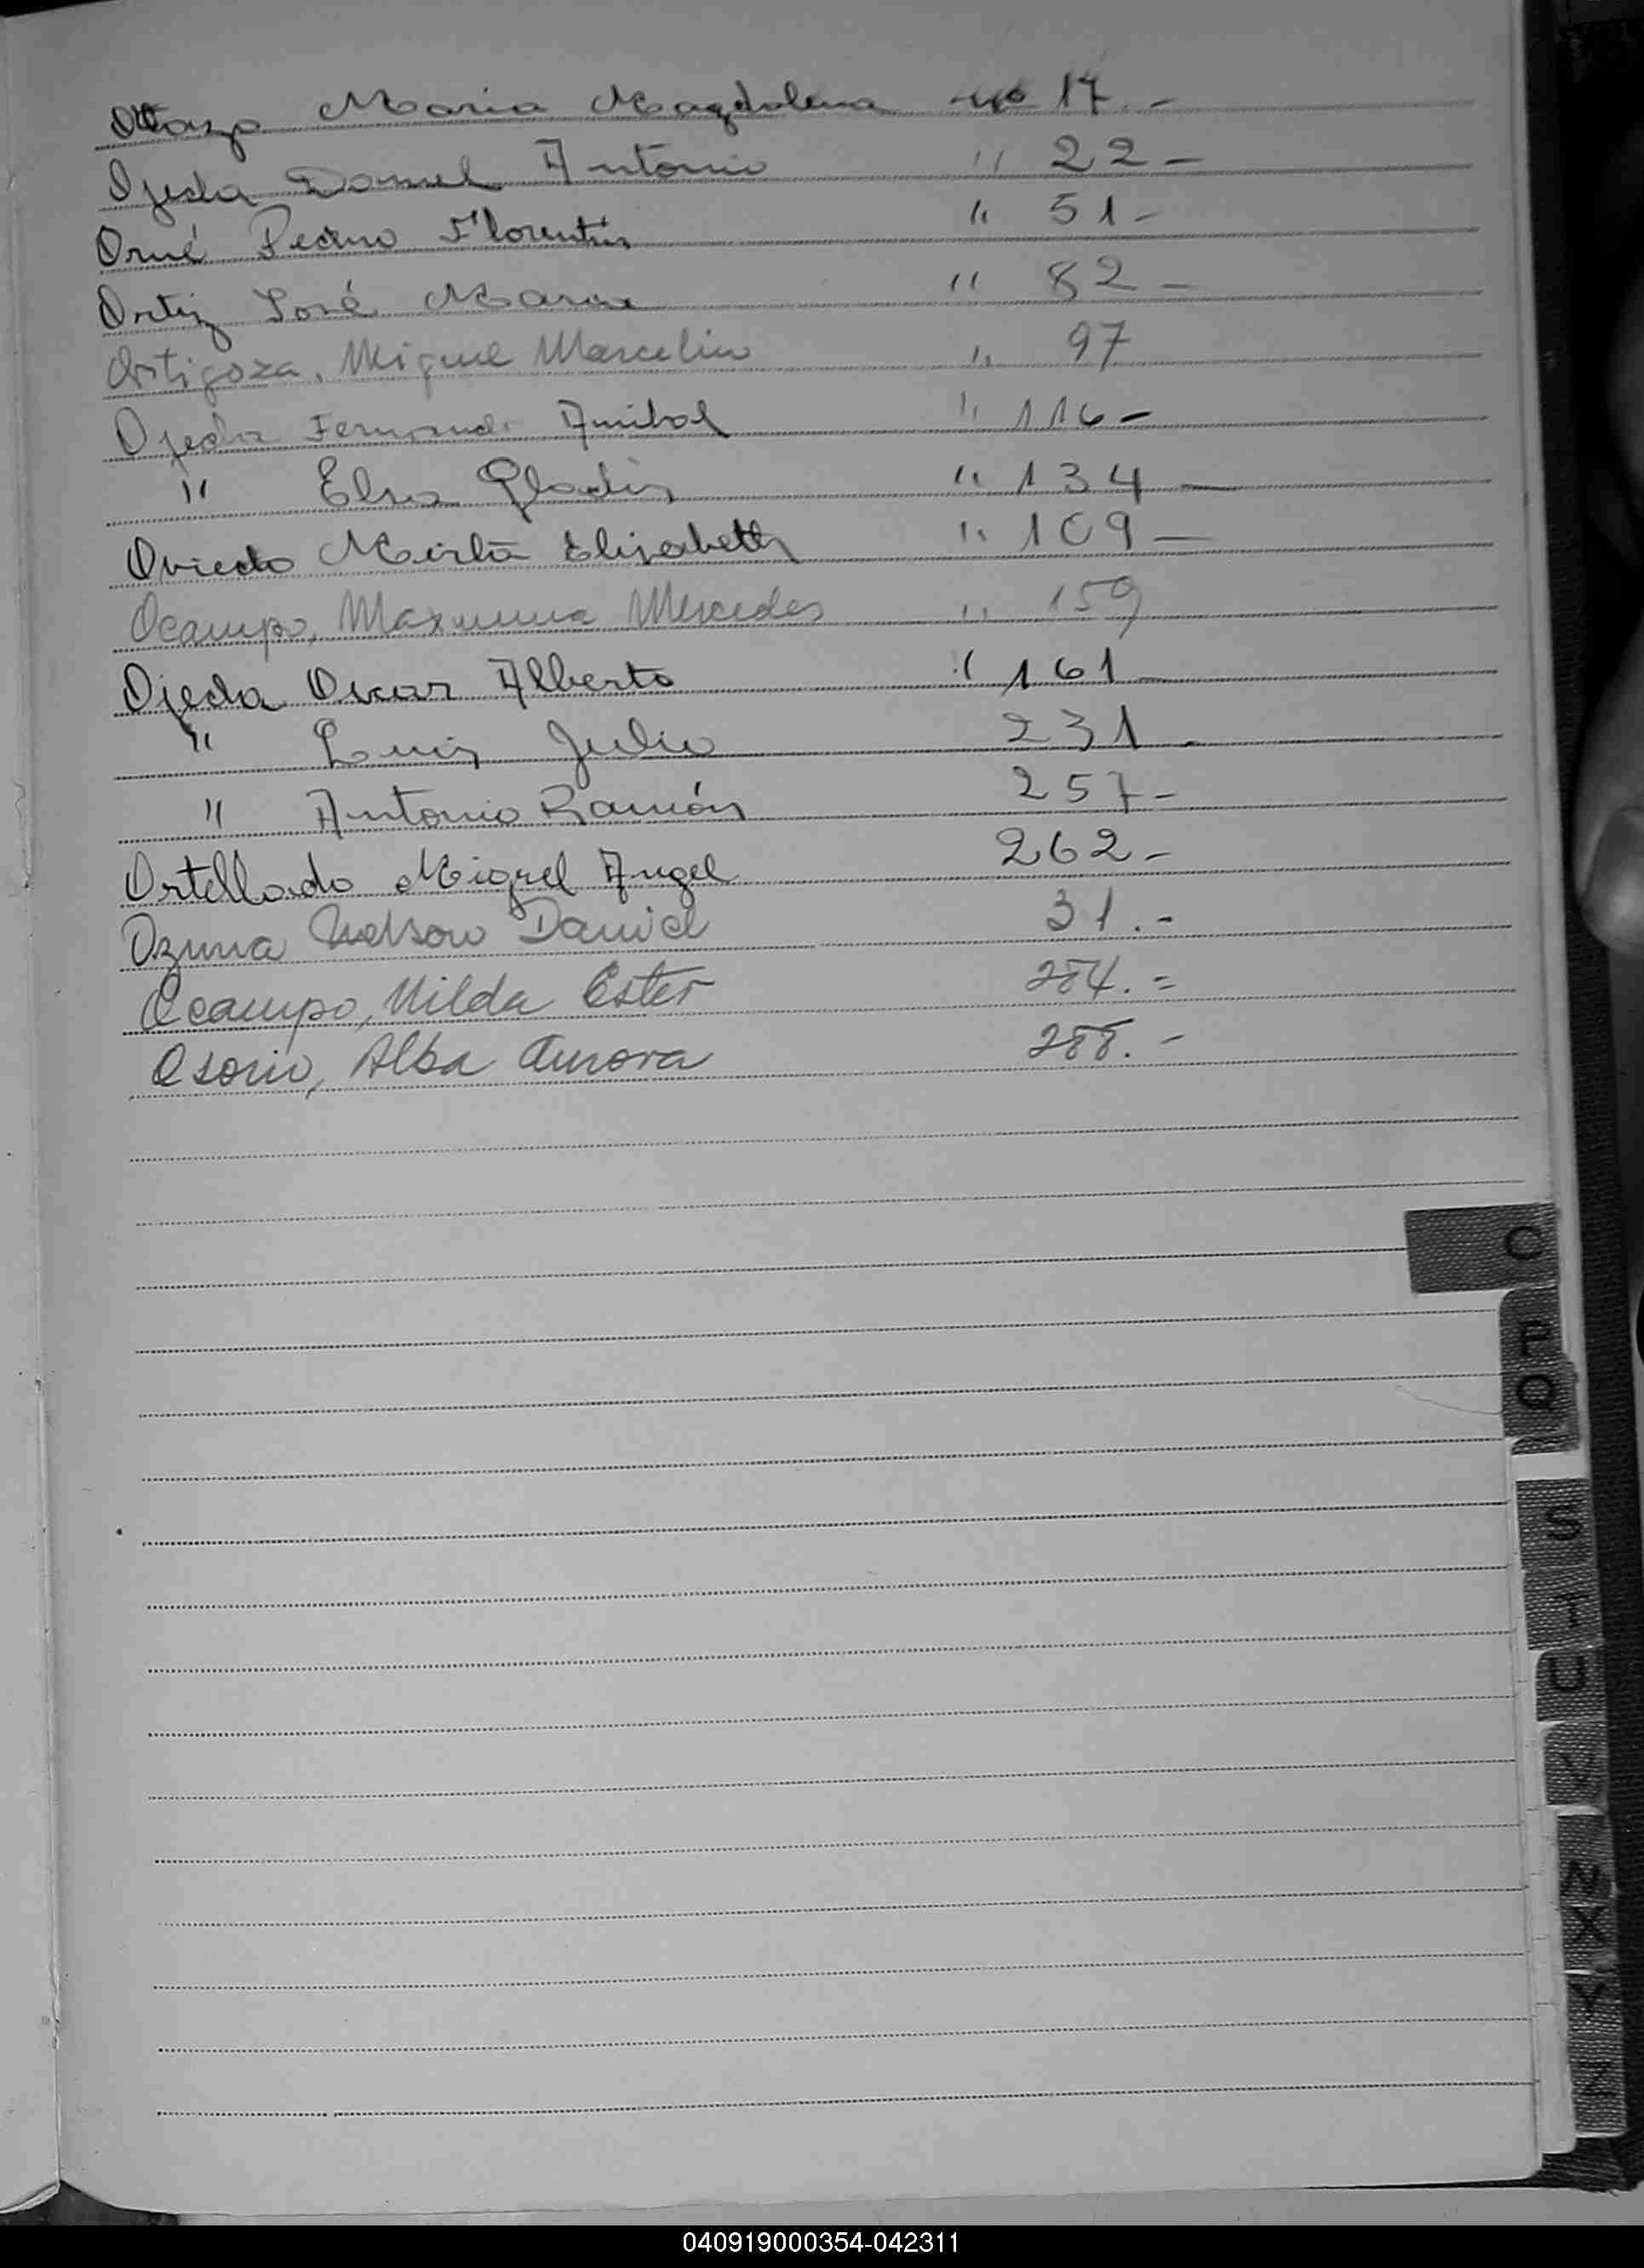 Otazo Maria Magdalena nº 17.-
Ojeda Daniel Antonio " 22-
Orué Pedro Florentín " 51-
Ortiz José Maria " 82-
Ortigoza, Miguel Marcelino " 97
Ojeda Fernando Anibal " 116-
" Elsa Gladis " 134-
Oviedo Mirta Elizabeth " 109-
Ocampo, Maximina Mercedes " 159
Ojeda Oscar Alberto " 161-
" Luis Julio 231-
" Antonio Ramón 257-
Ortellado Miguel Angel 262-
Ozuna Nelson Daniel 31.-
Ocampo, Nilda Ester 284.=
Osorio, Alba Aurora 288.-
O
P
Q
S
T
U
V
X
Y
Z
040919000354-042311